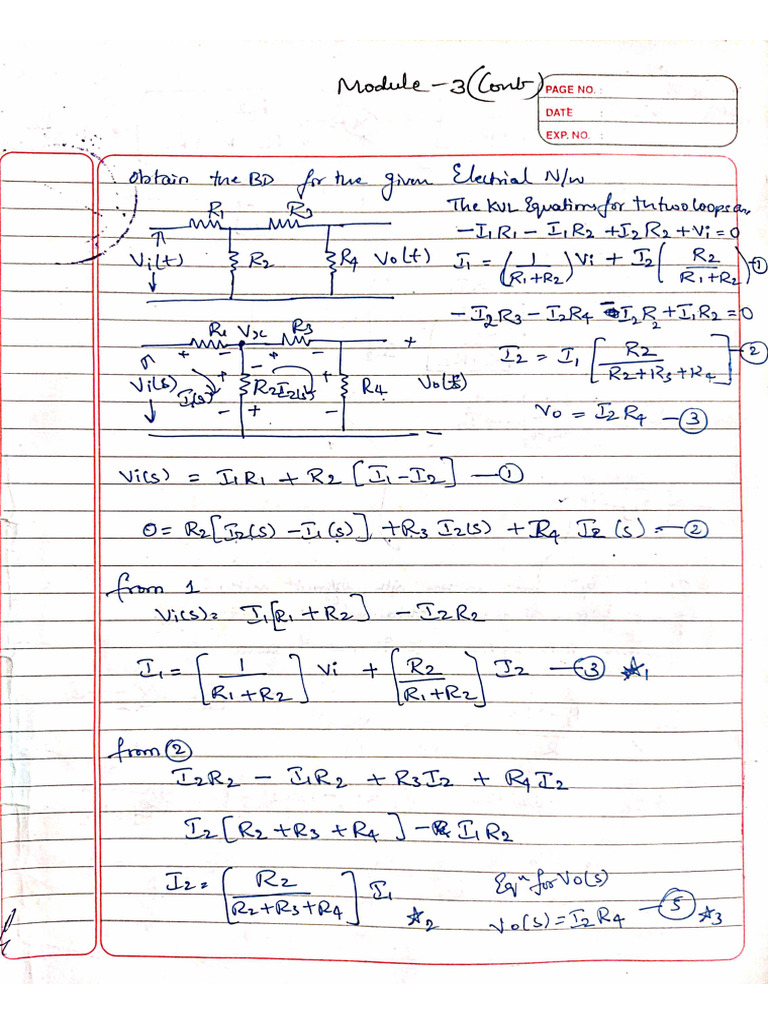 Module-3(Cont)
PAGE NO. :
DATE :
EXP. NO. :
Obtain the BD for the given Electrial N/w
The KVL Equations for the two loops are
R1 R3
-I1R1 - I1R2 + I2R2 + Vi = 0
Vi(t) R2 R4 Vo(t)
I1 = (1/(R1+R2)) Vi + I2 (R2/(R1+R2)) ①
-I2R3 - I2R4 - I2R2 + I1R2 = 0
R1 Vx R3
+ - + - +
I2 = I1 [R2/(R2+R3+R4)] - ②
Vi(s) I1(s) + - R2 I2(s) + R4 Vo(s)
- + - -
Vo = I2R4 - ③
Vi(s) = I1R1 + R2 [I1 - I2] - ①
0 = R2[I2(s) - I1(s)] + R3 I2(s) + R4 I2(s) - ②
from 1
Vi(s) = I1[R1 + R2] - I2R2
I1 = [1/(R1+R2)] Vi + [R2/(R1+R2)] I2 - ③ ☆1
from ②
I2R2 - I1R2 + R3I2 + R4I2
I2[R2 + R3 + R4] - I1R2
I2 = [R2/(R2+R3+R4)] I1 ☆2
Eqn for Vo(s)
Vo(s) = I2R4 - ⑤ ☆3